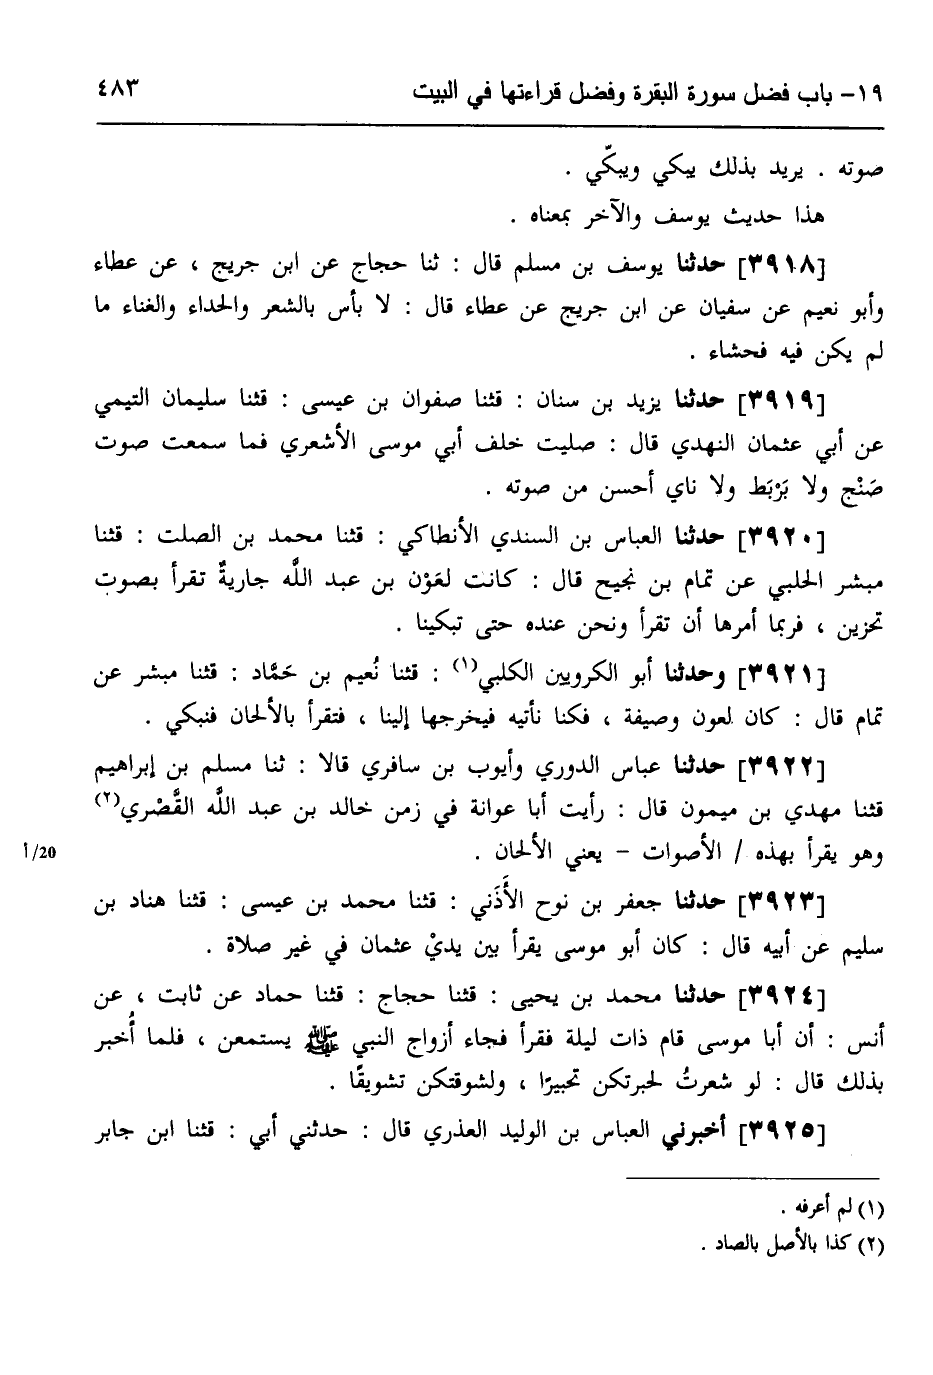 ١٩- باب فضل سورة البقرة وفضل قراءتها في البيت ٤٨٣
صوته . يريد بذلك يبكي ويبكّي .
هذا حديث يوسف والآخر بمعناه .
[٣٩١٨] حدثنا يوسف بن مسلم قال : ثنا حجاج عن ابن جريج ، عن عطاء
وأبو نعيم عن سفيان عن ابن جريج عن عطاء قال : لا بأس بالشعر والحداء والغناء ما
لم يكن فيه فحشاء .
[٣٩١٩] حدثنا يزيد بن سنان : قثنا صفوان بن عيسى : قثنا سليمان التيمي
عن أبي عثمان النهدي قال : صليت خلف أبي موسى الأشعري فما سمعت صوت
صَنْج ولا بَرْبَط ولا ناي أحسن من صوته .
[٣٩٢٠] حدثنا العباس بن السندي الأنطاكي : قثنا محمد بن الصلت : قثنا
مبشر الحلبي عن تمام بن نجيح قال : كانت لعَوْن بن عبد اللَّه جاريةٌ تقرأ بصوت
تحزين ، فربما أمرها أن تقرأ ونحن عنده حتى تبكينا .
[٣٩٢١] وحدثنا أبو الكرويين الكلبي(١) : قثنا نُعيم بن حَمَّاد : قثنا مبشر عن
تمام قال : كان لعون وصيفة ، فكنا نأتيه فيخرجها إلينا ، فتقرأ بالألحان فنبكي .
[٣٩٢٢] حدثنا عباس الدوري وأيوب بن سافري قالا : ثنا مسلم بن إبراهيم
قثنا مهدي بن ميمون قال : رأيت أبا عوانة في زمن خالد بن عبد اللَّه القَّصْري(٢)
وهو يقرأ بهذه / الأصوات - يعني الألحان . 20/أ
[٣٩٢٣] حدثنا جعفر بن نوح الأَذَني : قثنا محمد بن عيسى : قثنا هناد بن
سليم عن أبيه قال : كان أبو موسى يقرأ بين يديْ عثمان في غير صلاة .
[٣٩٢٤] حدثنا محمد بن يحيى : قثنا حجاج : قثنا حماد عن ثابت ، عن
أنس : أن أبا موسى قام ذات ليلة فقرأ فجاء أزواج النبي ﷺ يستمعن ، فلما أُخبر
بذلك قال : لو شعرتُ لحبرتكن تحبيرًا ، ولشوقتكن تشويقًا .
[٣٩٢٥] أخبرني العباس بن الوليد العذري قال : حدثني أبي : قثنا ابن جابر
(١) لم أعرفه .
(٢) كذا بالأصل بالصاد .